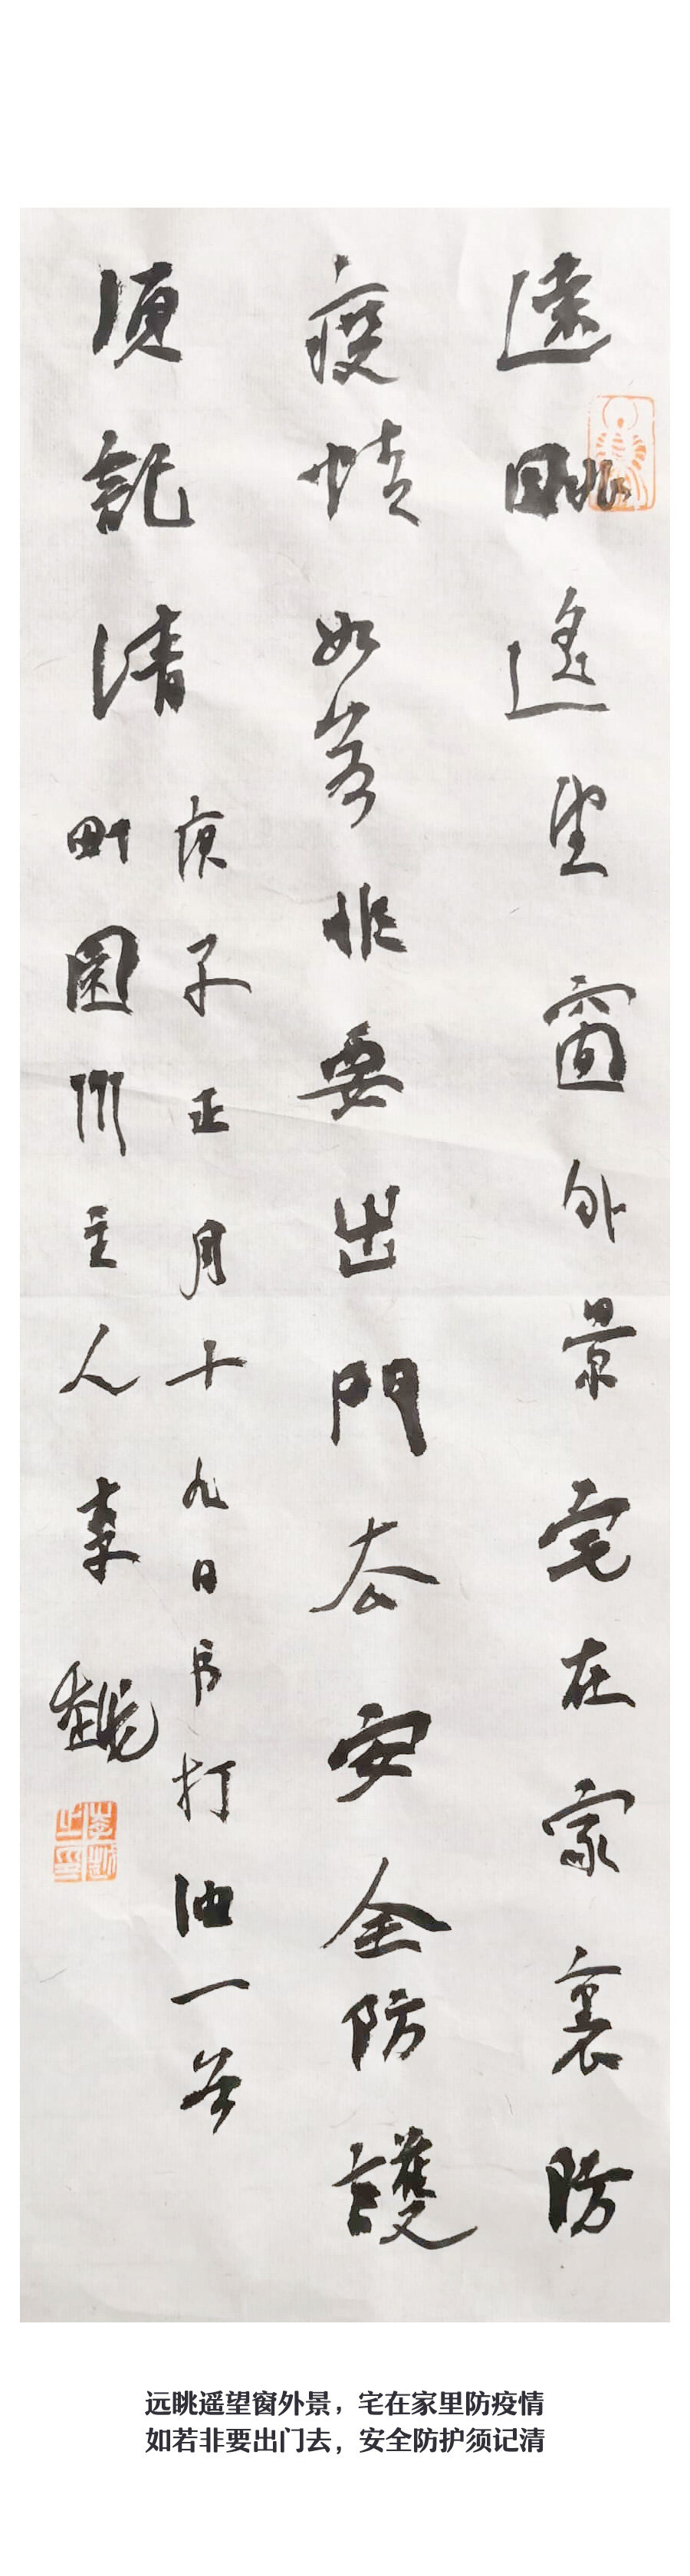 遠眺遙望窗外景宅在家裏防
疫情如若非要出門去安全防護
須記清
庚子正月十九日書打油一首
町園川主人李越
李越之印
远眺遥望窗外景，宅在家里防疫情
如若非要出门去，安全防护须记清